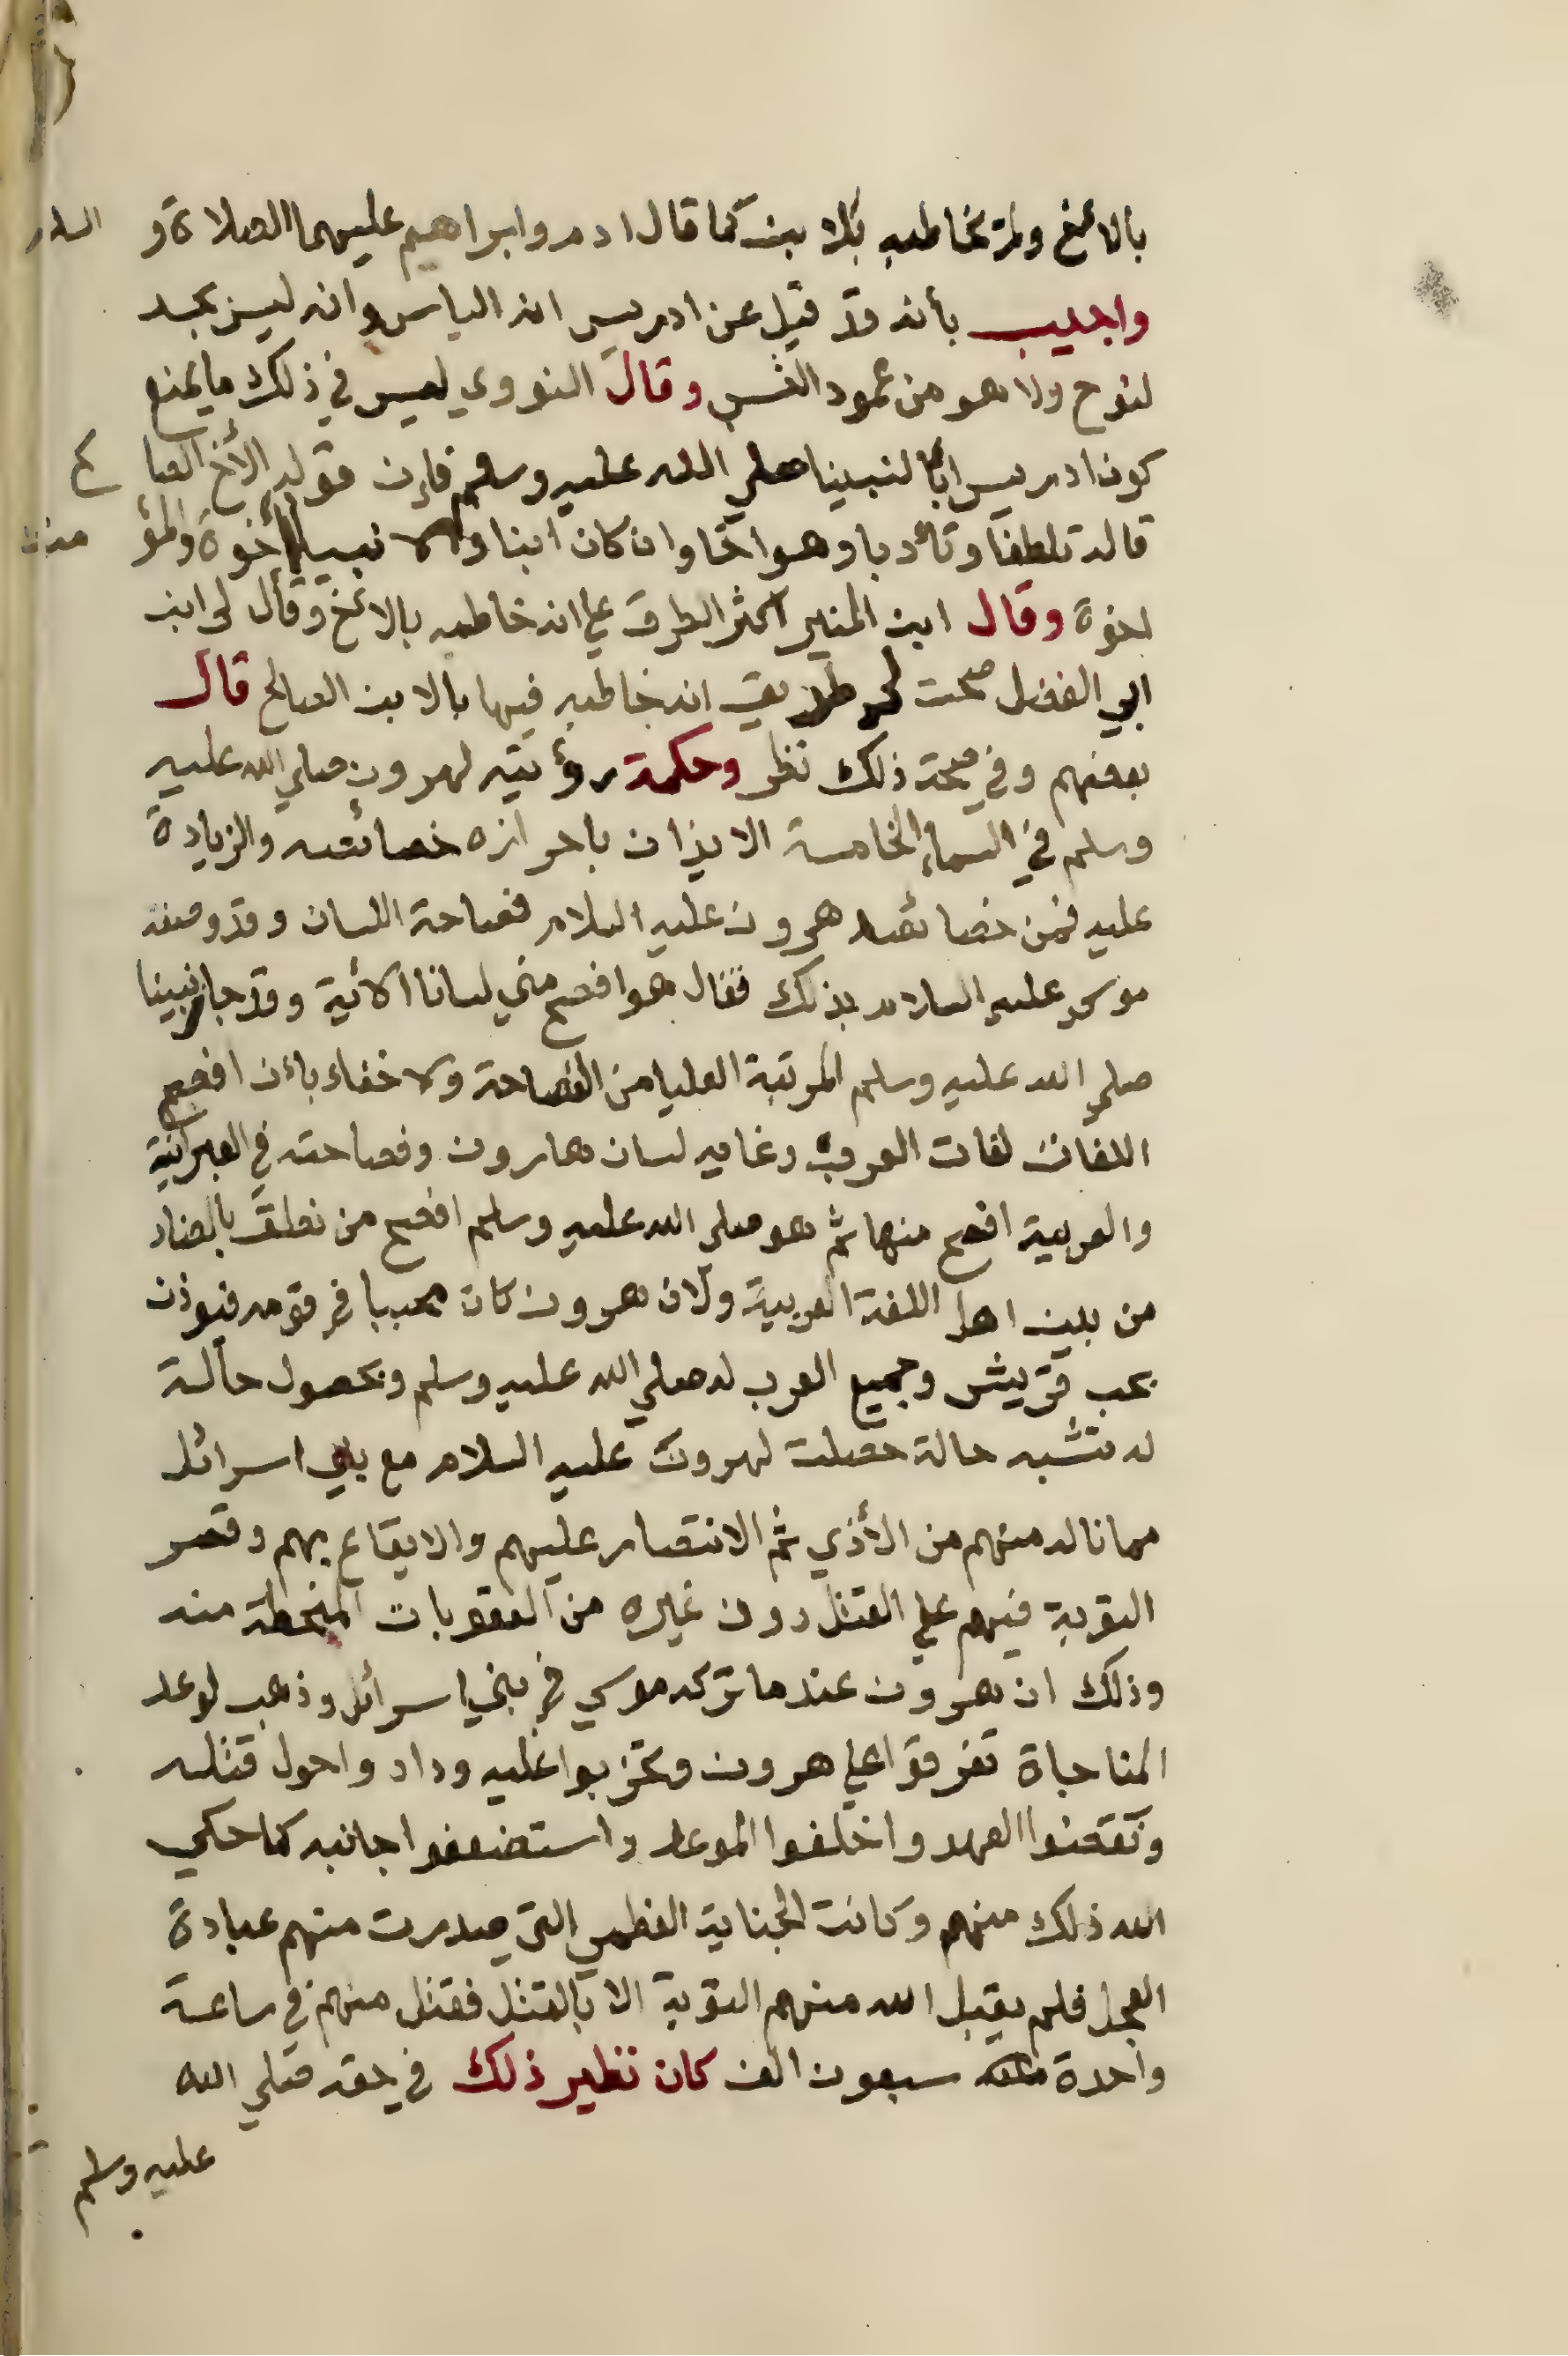 بالاخ ولم يخاطبه بالابن كما قال ادم وابراهيم عليهما الصلاة و السلام
واجيب بأنه قد قيل عن ادريس انه الياس وانه ليس بجد
لنوح ولا هو من عمود النسب وقال النووي ليس في ذلك ما يمنع
كون ادريس ابًا لنبينا صلي الله عليه وسلم فإن قوله الأخ الصالح
قاله تلطفا وتأدبا وهو اخًا وان كان ابنا والانبياء أخوة والمؤمنون
اخوة وقال ابن المنير اكثر الطرق علي انه خاطبه بالاخ وقال لي ابن
ابي الفضل صحت لي طريق انه خاطبه فيها بالابن الصالح قال
بعضهم وفي صحة ذلك نظر وحكمة رؤيته لهرون صلي الله عليه
وسلم في السماء الخامسة الايذان باحرازه خصائصه والزيادة
عليه فمن خصائصه هرون عليه السلام فصاحة اللسان وقد وصفه
موسي عليه السلام بذلك فقال هو افصح مني لسانا الآية وقد حاز نبينا
صلي الله عليه وسلم المرتبة العليا من الفصاحة ولا خفاء بان افصح
اللغات لغات العرب وغاية لسان هارون وفصاحته في العبرانية
والعربية افصح منها ثم هو صلي الله عليه وسلم افصح من نطق بالضاد
من بين اهل اللغة العربية ولان هرون كان محببا في قومه فيوذن
بحب قريش وجميع العرب له صلي الله عليه وسلم وبحصول حالة
له تشبه حالة حصلت لهرون عليه السلام مع بني اسرائل
مما ناله منهم من الأذي ثم الانتصار عليهم والايقاع بهم وقصر
التوبة فيهم علي القتل دون غيره من العقوبات المنحطة منه
وذلك ان هرون عندما تركه موسي في بني اسرائل وذهب لوعد
المناجاة تفرقوا علي هرون وتحزبوا عليه وداروا حول قتله
ونقضوا العهد واخلفوا الموعد واستضعفوا جانبه كما حكي
الله ذلك منهم وكانت الجناية العظمي التي صدرت منهم عبادة
العجل فلم يقبل الله منهم التوبة الا بالقتل فقتل منهم في ساعة
واحدة سبعون الف كان نظير ذلك في حقه صلي الله
عليه وسلم